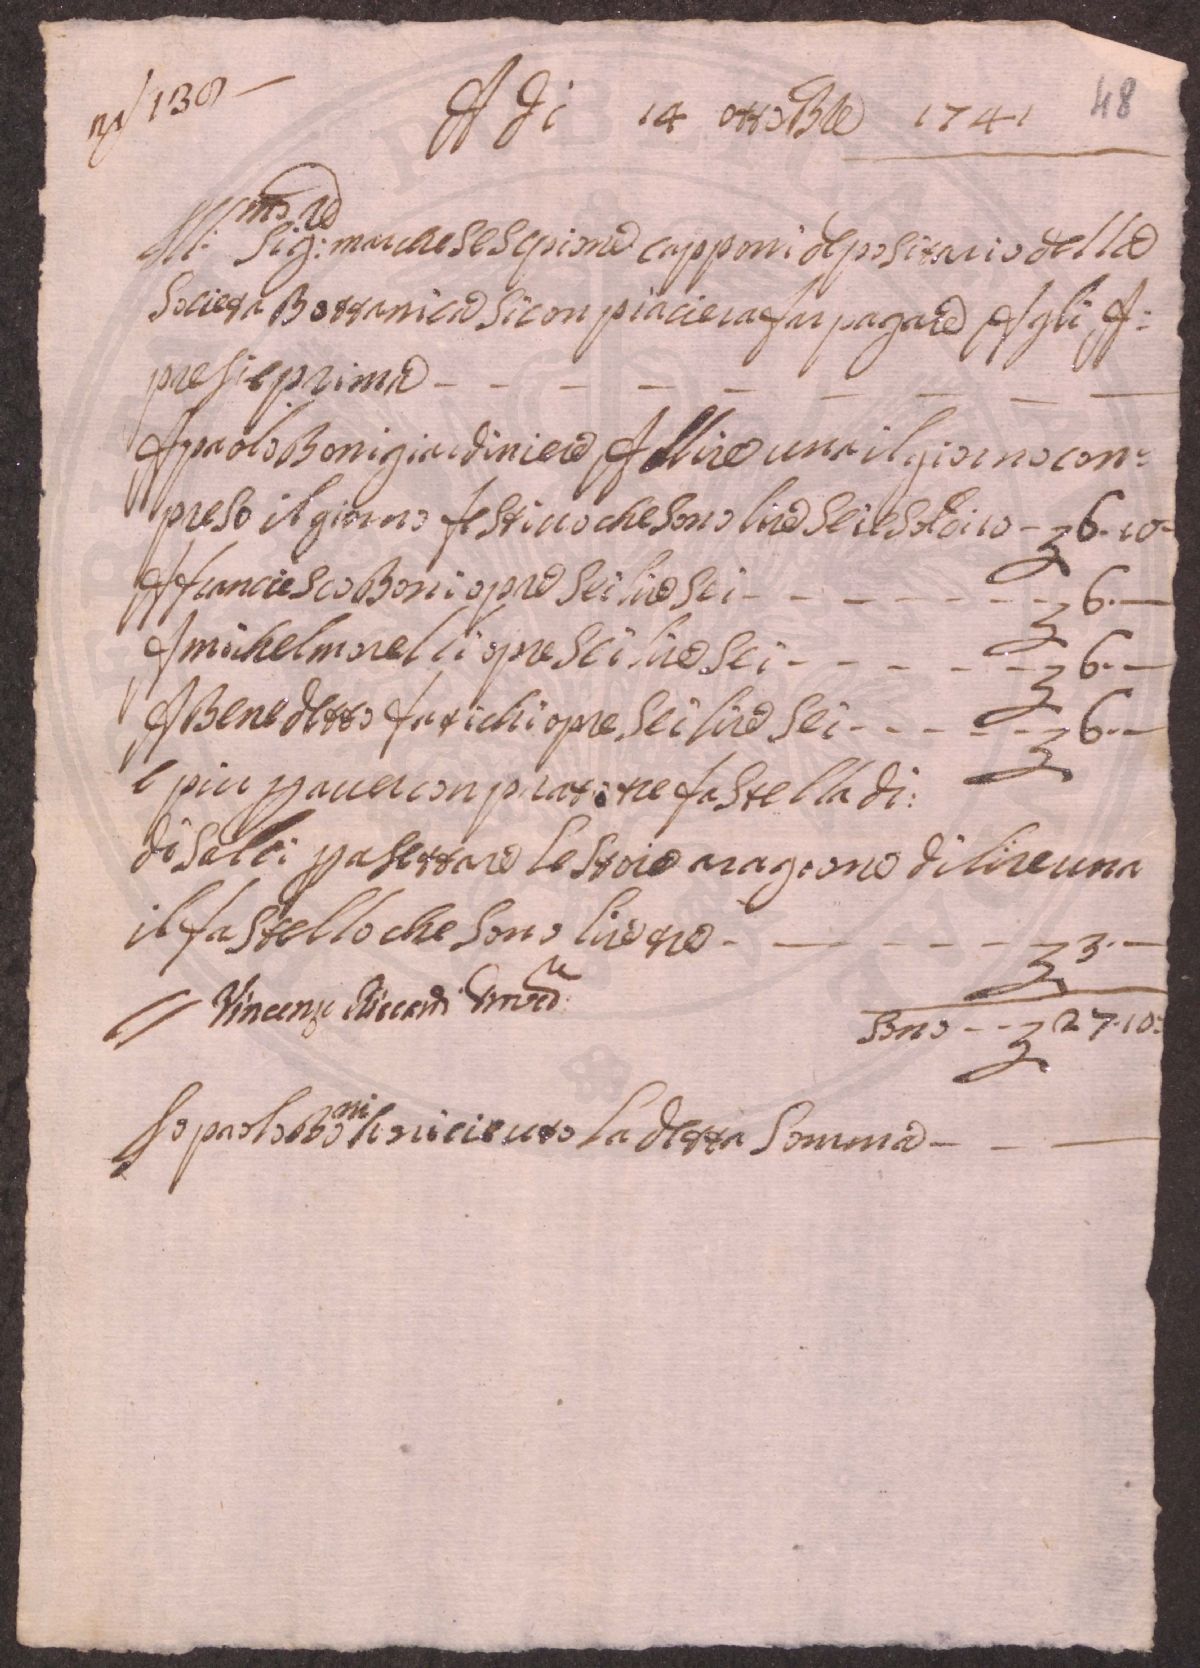 N 130
48
A di 14 ottoBre 1741
Ill: mo re
Sig: marchese Sepione capponi depositario delle
Societa Bottanica si conpiaciera far pagare A gli A:
presie prima
A paolo Boni giardiniere A llire una il giorno con:
preso il giorno festivo che sono lire sei e soldi 10 - 6.10
A francescο Boni opre sei lire sei - 6.-
A michel morelli opre sei lire sei - 6.-
A Benedetto fatichi opre sei lire sei - 6.-
e piu p aver conprato tre fastella di:
di salci p asettare le stoie a ragione di lire una
il fastello che sono lire tre - 3.-
Vincenz Riccardi
sono - 27.10
Io paolo Boni ho riceuto la detta somma